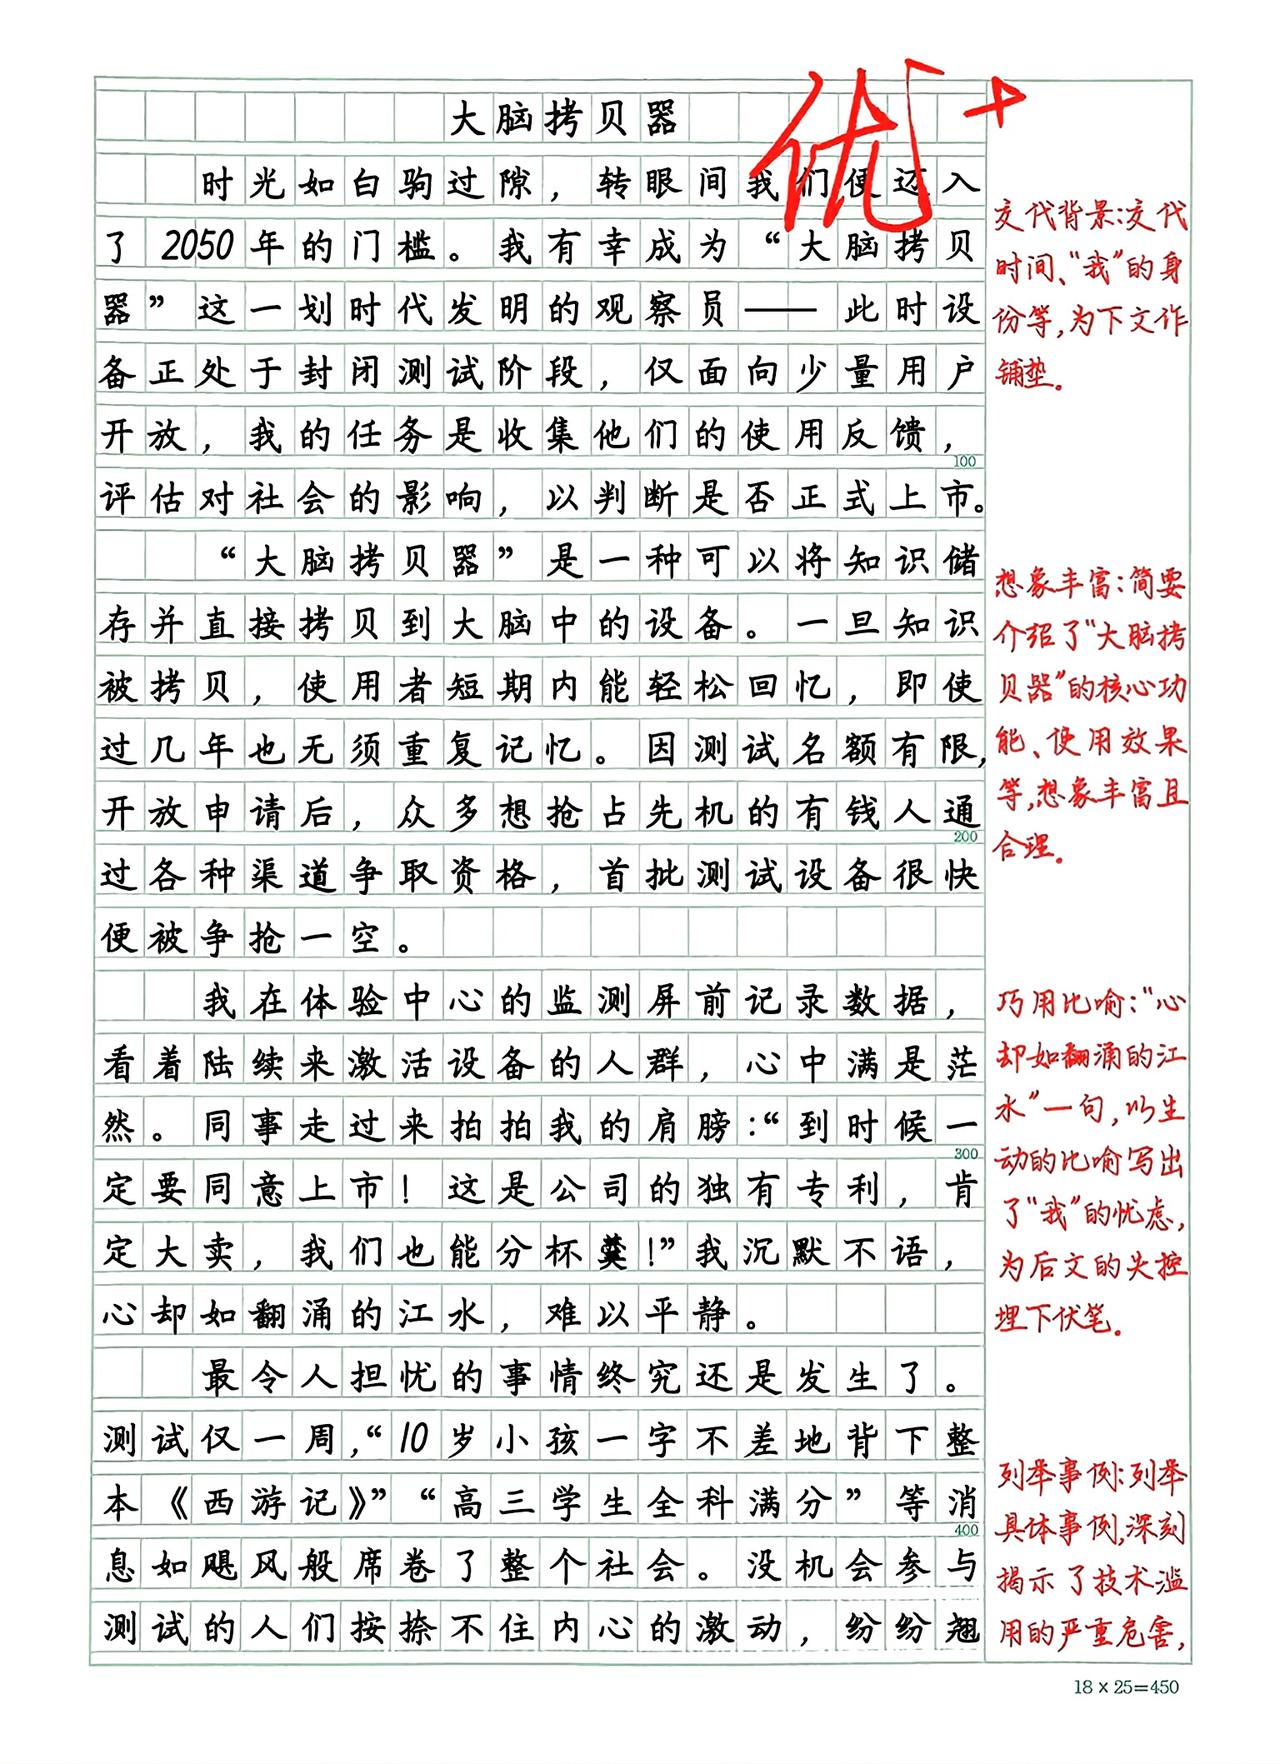 大脑拷贝器
优+
时光如白驹过隙，转眼间我们便迈入
了2050年的门槛。我有幸成为“大脑拷贝
器”这一划时代发明的观察员——此时设
备正处于封闭测试阶段，仅面向少量用户
开放，我的任务是收集他们的使用反馈，
100
评估对社会的影响，以判断是否正式上市。
“大脑拷贝器”是一种可以将知识储
存并直接拷贝到大脑中的设备。一旦知识
被拷贝，使用者短期内能轻松回忆，即使
过几年也无须重复记忆。因测试名额有限，
开放申请后，众多想抢占先机的有钱人通
200
过各种渠道争取资格，首批测试设备很快
便被争抢一空。
我在体验中心的监测屏前记录数据，
看着陆续来激活设备的人群，心中满是茫
然。同事走过来拍拍我的肩膀：“到时候一
300
定要同意上市！这是公司的独有专利，肯
定大卖，我们也能分杯羹！”我沉默不语，
心却如翻涌的江水，难以平静。
最令人担忧的事情终究还是发生了。
测试仅一周，“10岁小孩一字不差地背下整
本《西游记》”“高三学生全科满分”等消
400
息如飓风般席卷了整个社会。没机会参与
测试的人们按捺不住内心的激动，纷纷翘
交代背景：交代
时间、“我”的身
份等，为下文作
铺垫。
想象丰富：简要
介绍了“大脑拷
贝器”的核心功
能、使用效果
等，想象丰富且
合理。
巧用比喻：“心
却如翻涌的江
水”一句，以生
动的比喻写出
了“我”的忧虑，
为后文的失控
埋下伏笔。
列举事例：列举
具体事例，深刻
揭示了技术滥
用的严重危害，
18×25=450